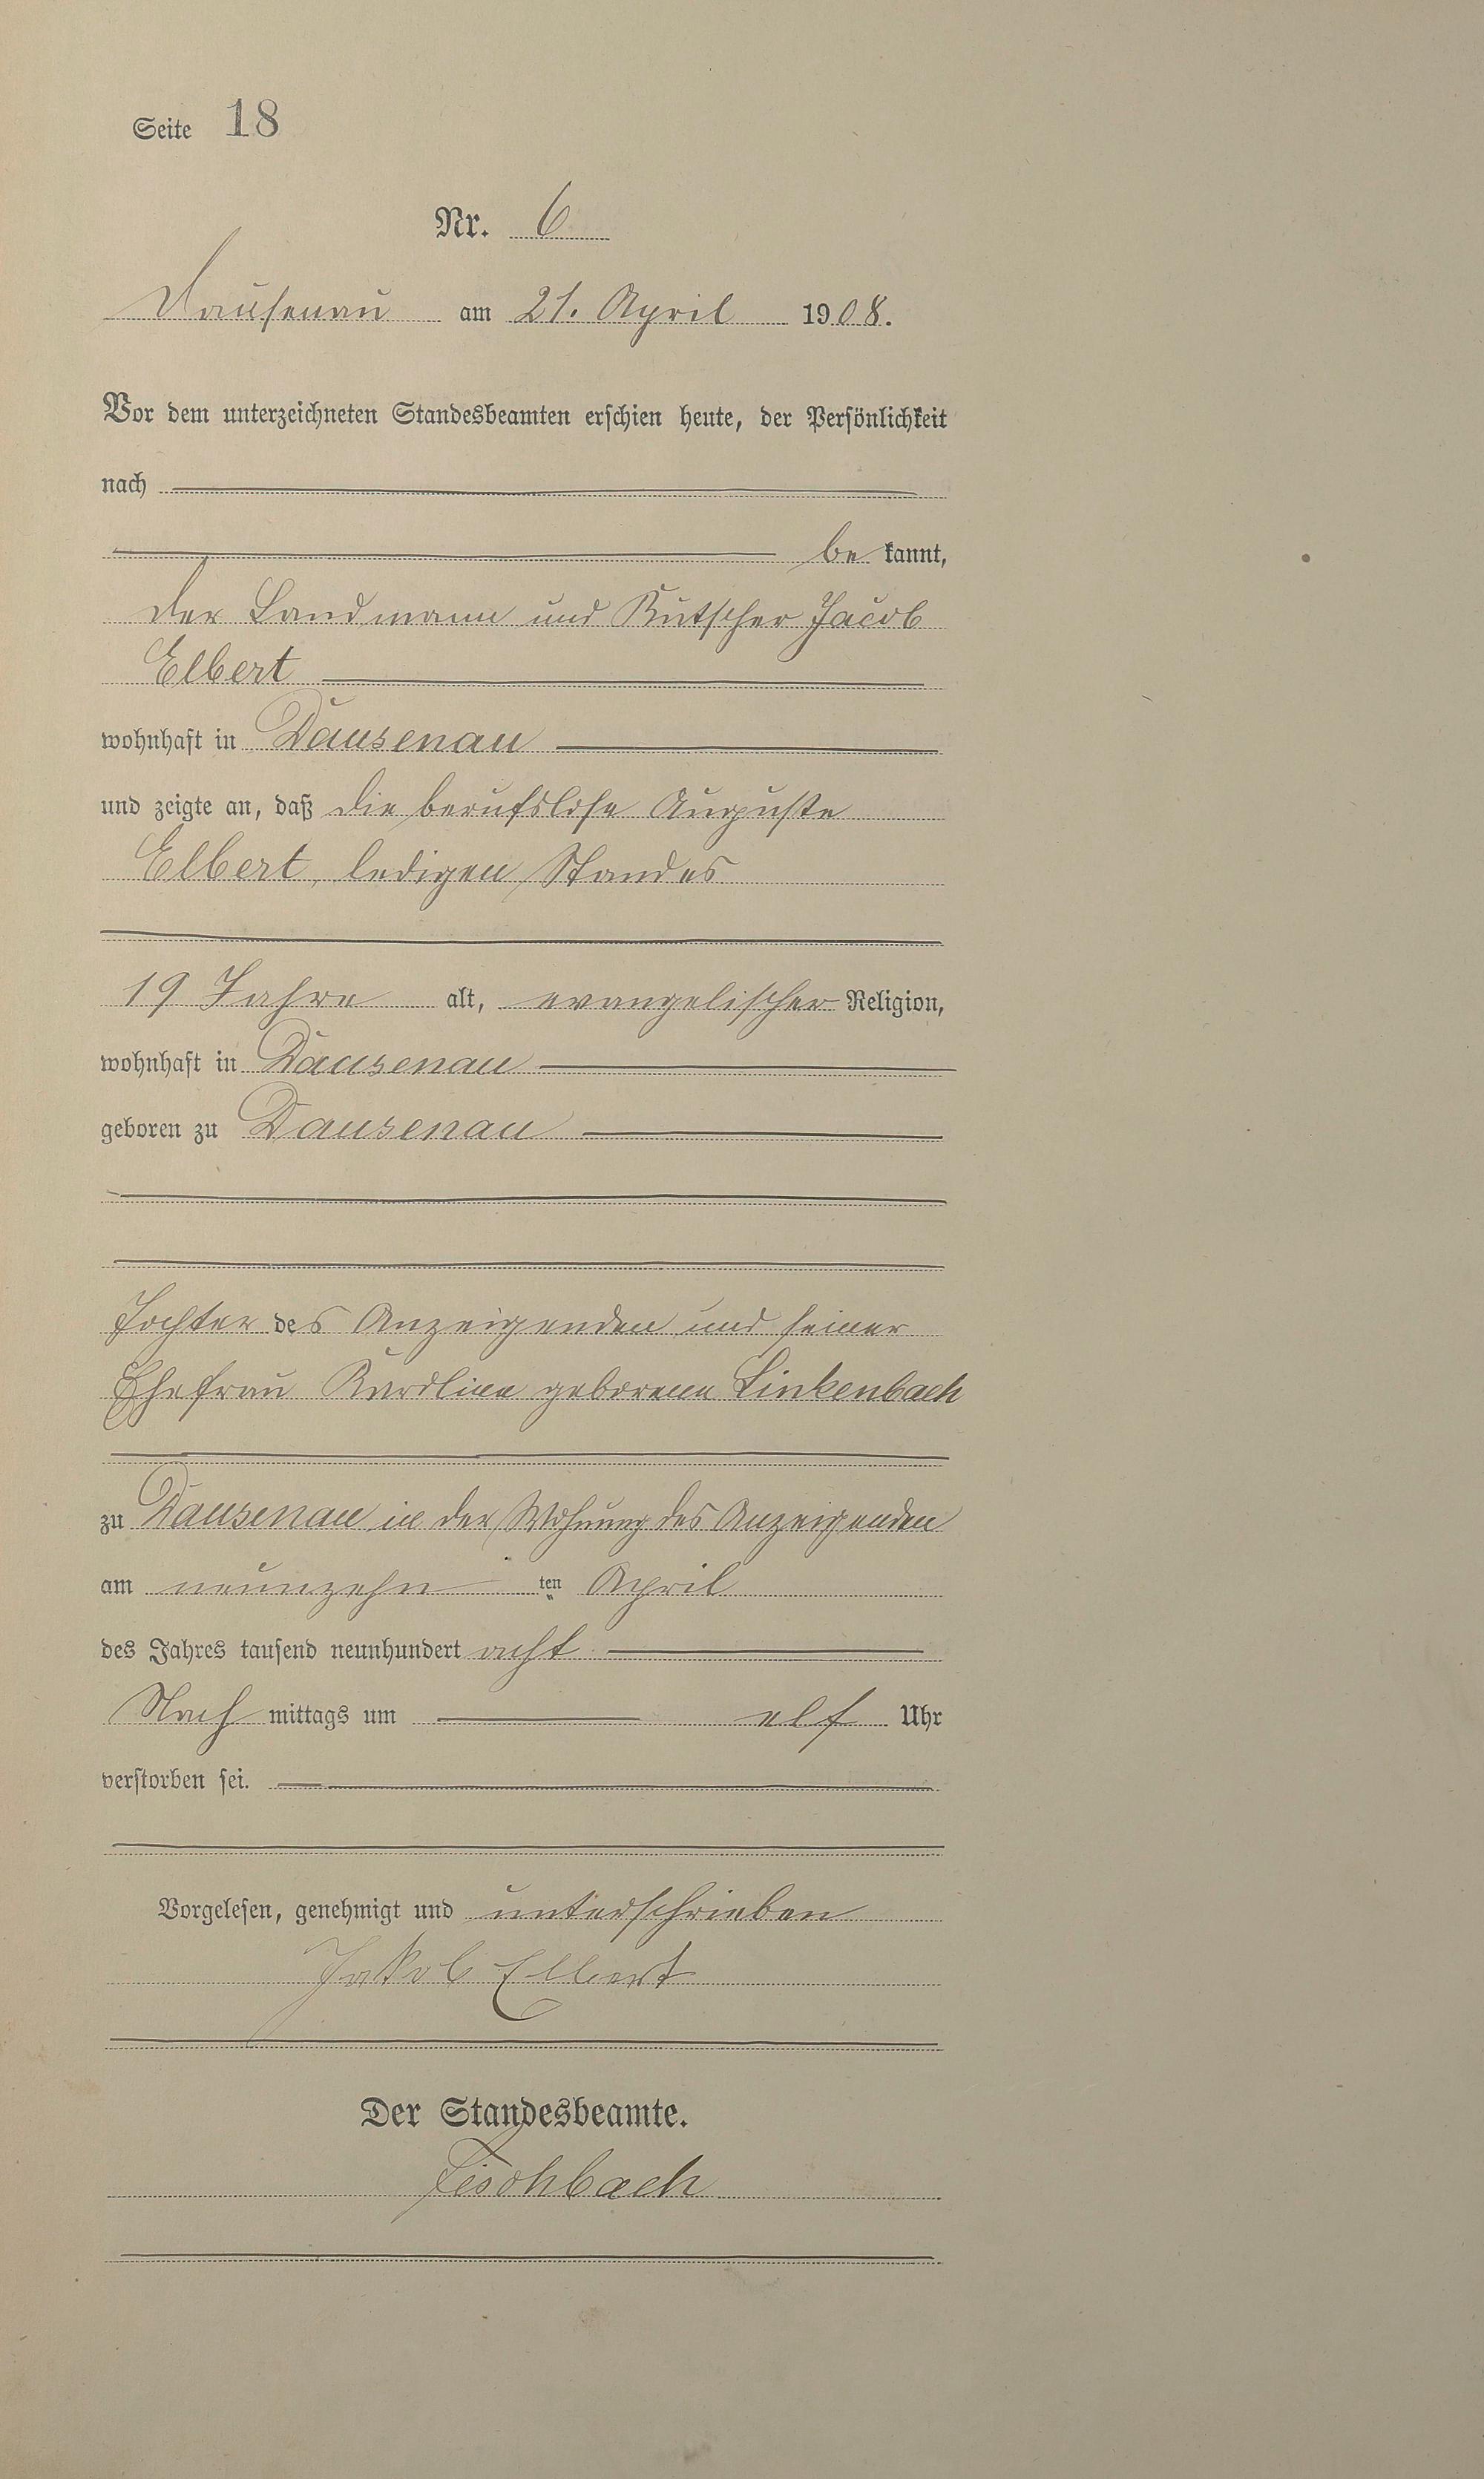 Seite 18
Nr. 6
Dausenau am 21. April 1908.
Vor dem unterzeichneten Standesbeamten erschien heute, der Persönlichkeit
nach
be kannt,
der Landmann und Kutscher Jacob
Elbert
wohnhaft in Dausenau
und zeigte an, daß die berufslose Auguste
Elbert, ledigen Standes
19 Jahre alt, evangelischer Religion,
wohnhaft in Dausenau
geboren zu Dausenau
Tochter des Anzeigenden und seiner
Ehefrau Karoline geborene Linkenbach
zu Dausenau in der Wohnung des Anzeigenden
am neunzehn ten April
des Jahres tausend neunhundert acht
Nach mittags um elf Uhr
verstorben sei.
Vorgelesen, genehmigt und unterschrieben
Jakob Elbert
Der Standesbeamte.
Fischbach